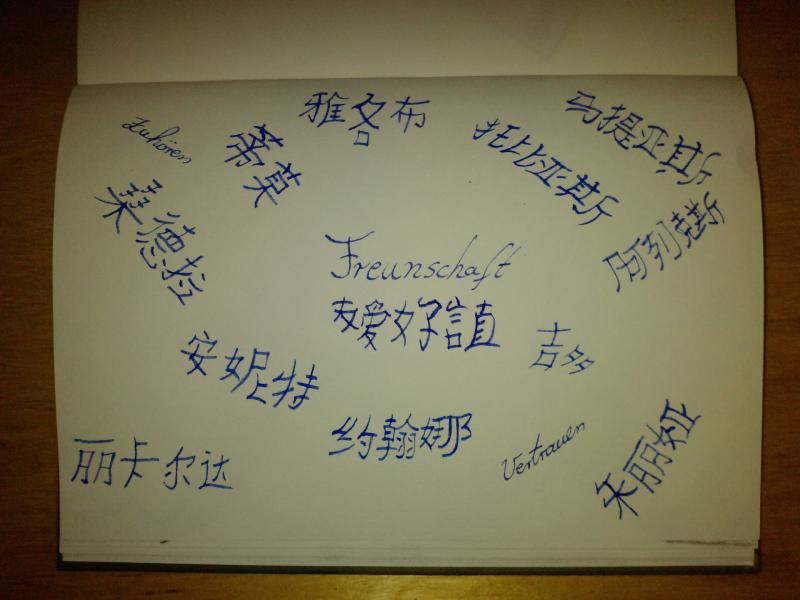 雅各布
马提亚斯
Zuhören
蒂莫
托比亚斯
桑德拉
阿列克斯
Freunschaft
友爱好信直
吉多
安妮特
约翰娜
朱丽娅
Vertrauen
丽卡尔达